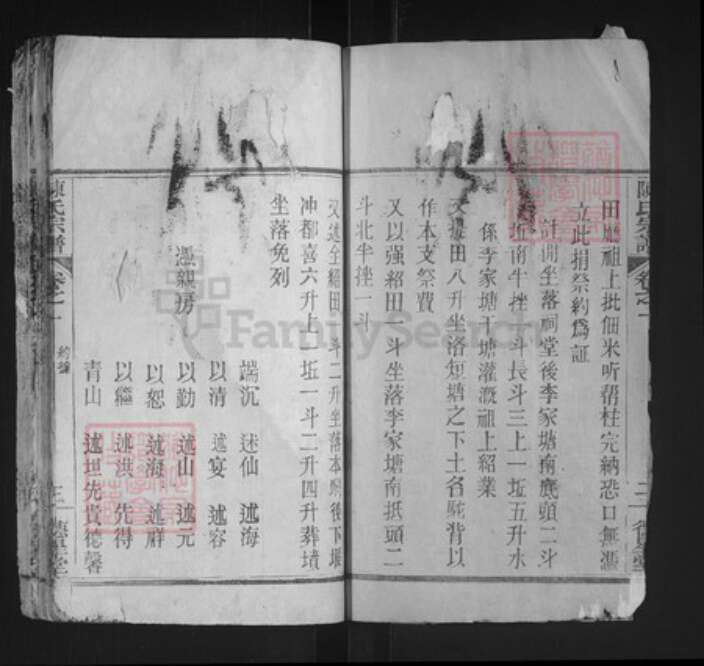 田塍祖上批佃米听帮柱完納恐口無憑
立此捐祭約爲証
計開坐落祠堂後李家塘南底頭二斗
坵南牛挫一斗長斗三上一坵五升水
係李家塘干塘灌溉祖上紹業
又 田八升坐洛短塘之下土名駝背以
作本支祭費
又以强紹田一斗坐落李家塘南抵頭二
斗北半挫一斗
又述全紹田 斗二升坐落本 後下堰
冲都喜六升上坵一斗二升四升葬墳
坐落免列
憑親房
端沉 述仙 述海
以清 述宴 述容
以勤 述山 述元
以恕 述海 述群
以繼 述洪 先得
青山 述坦 先貴 德馨
陳氏宗譜 卷之一 約 三
陳氏宗譜 卷之一 二
FamilySearch